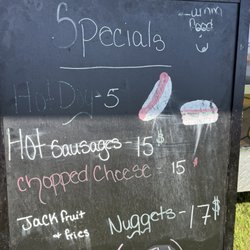 Specials
Hot Diy - 5
Hot Sausages - 15$
Chopped Cheese - 15$
Jackfruit Nuggets - 17$
+ fries